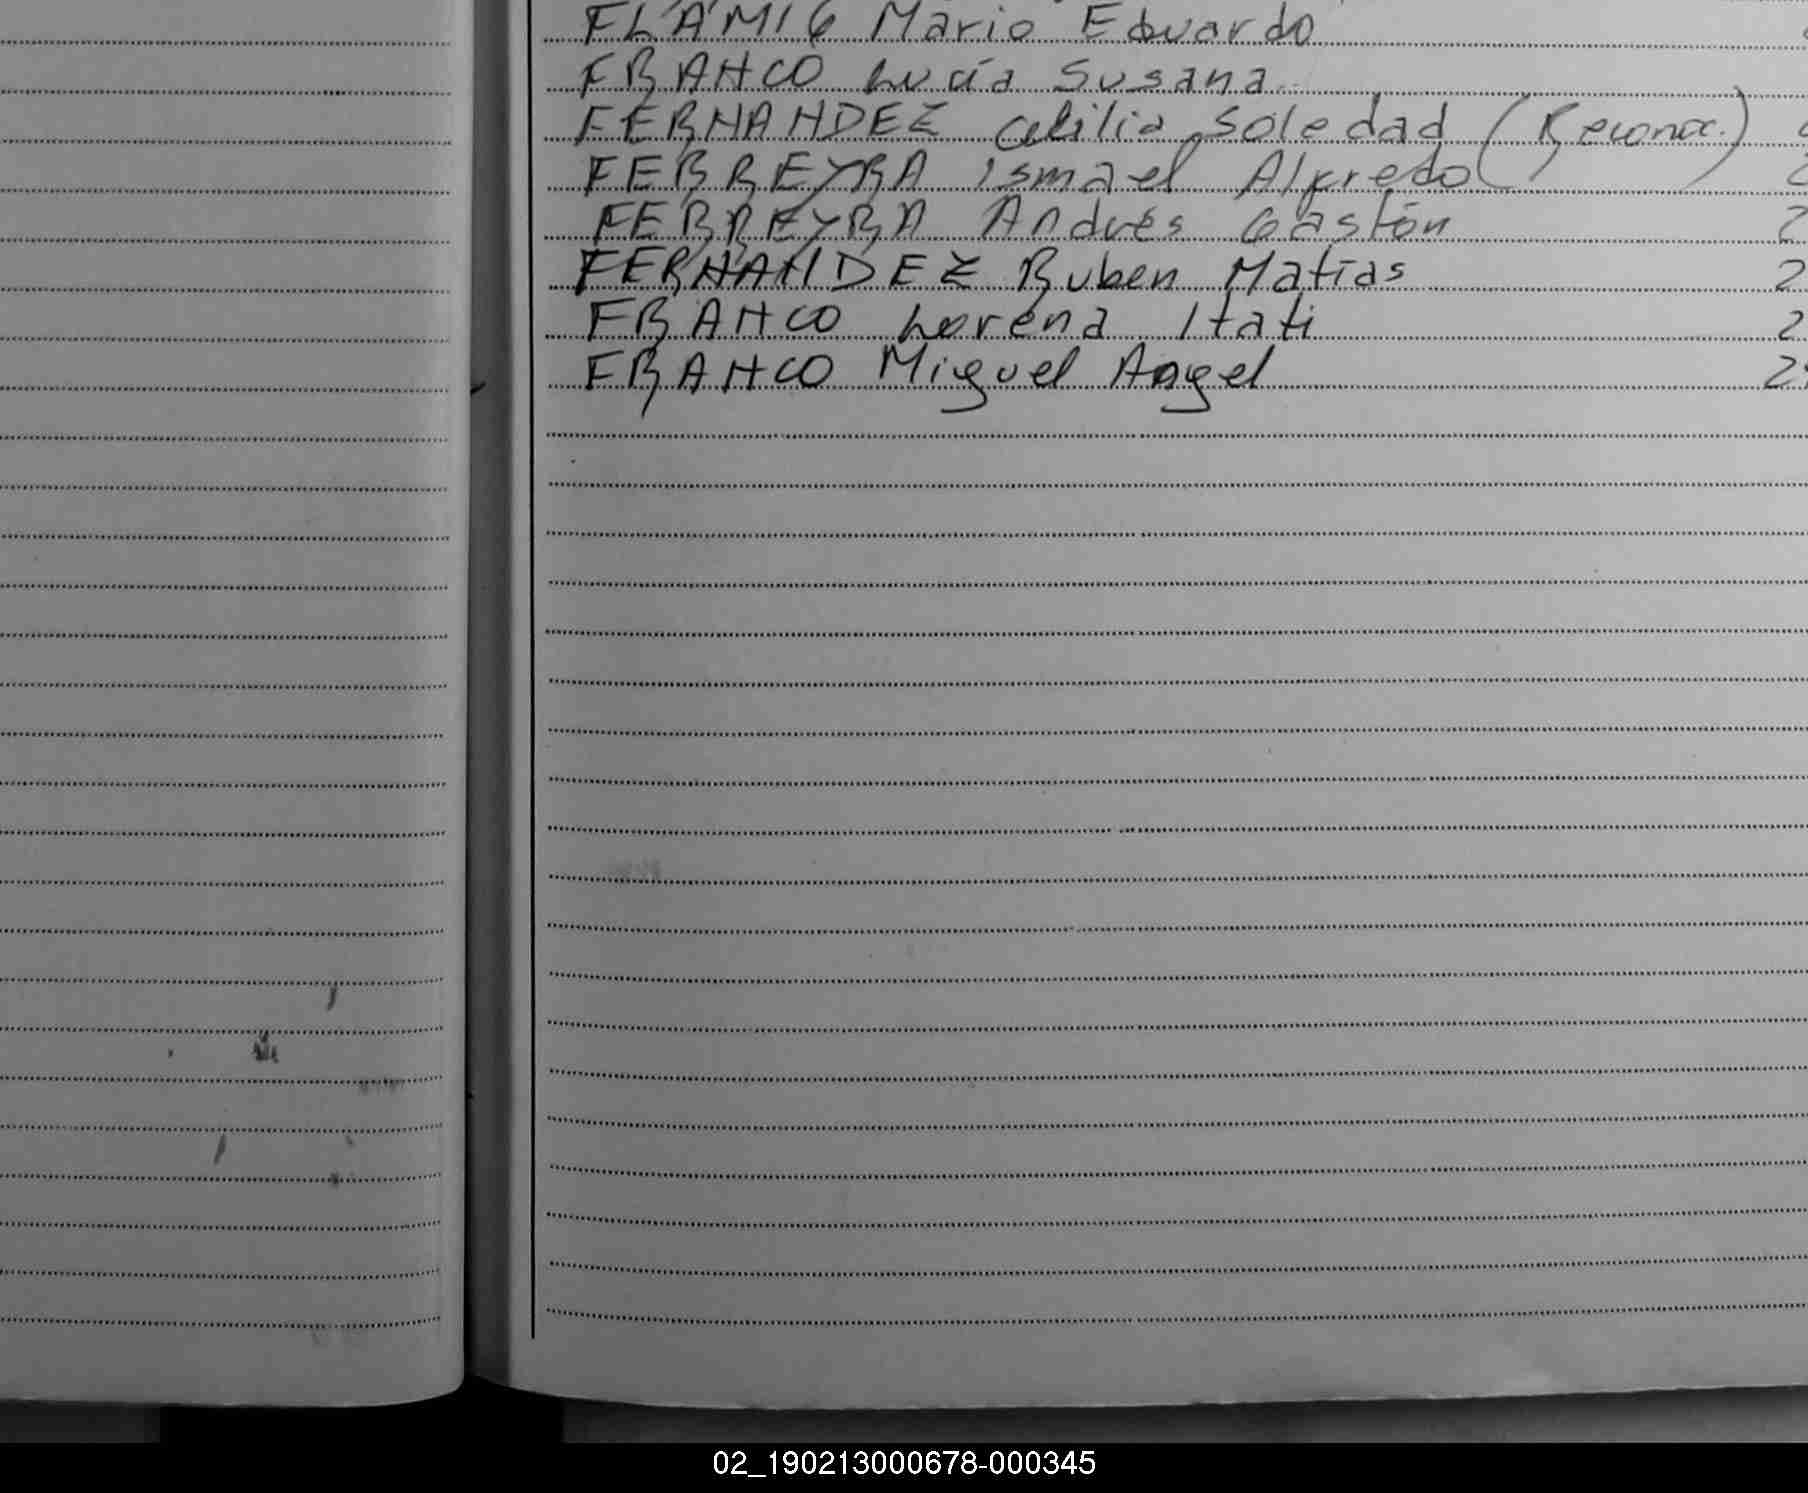 FLAMIG Mario Eduardo
FRANCO Lucía Susana
FERNANDEZ Celilia Soledad (Reconoc.)
FERREYRA Ismael Alfredo
FERREYRA Andrés Gastón 2
FERNANDEZ Ruben Matías 2
FRANCO Lorena Itati 2
FRANCO Miguel Angel 2
02_190213000678-000345